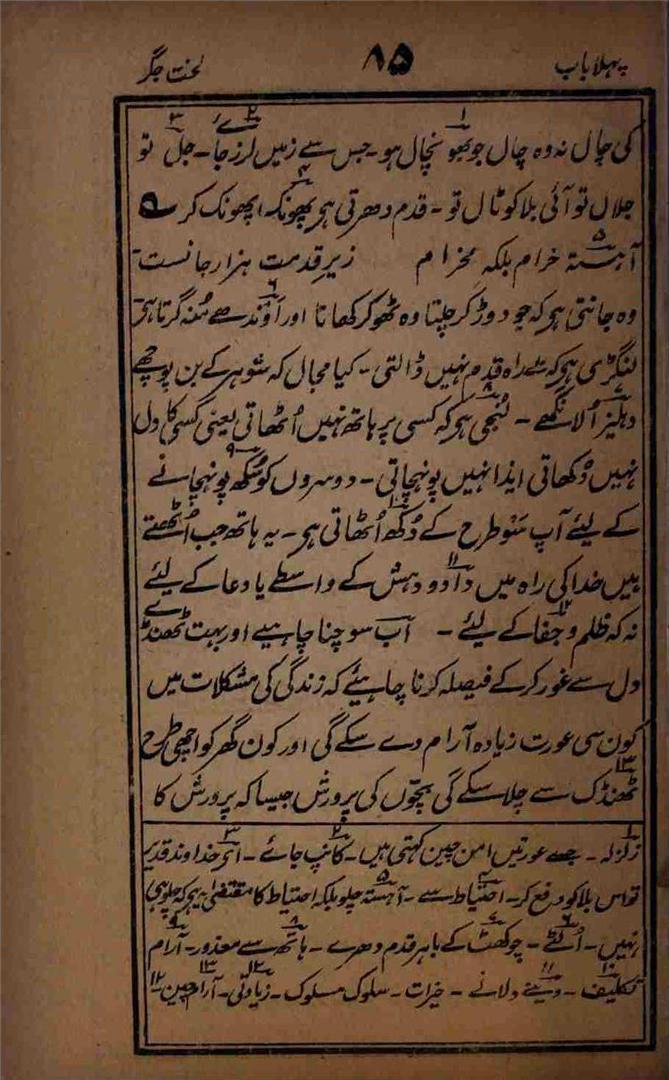 پہلا باب ۸۵ لخت جگر
کی چال نہ وہ چال جو بھونچال ہو۔ جس سے زمیں لرز جاے۔ جل تو
جلال تو آئی بلا کو ٹال تو۔ قدم دھرتی ہر پھونک پھونک کر ۵
آہستہ خرام بلکہ مخرام زیر قدمت ہزار جانست۔
وہ جانتی ہر کہ جو دوڑ کر چلتا وہ ٹھوکر کھاتا اور اوندھے مُنہ گرتا ہی
لنگڑی ہر کہ بے راہ قدم نہیں ڈالتی۔ کیا مجال کہ شوہر کے بن پوچھے
دہلیز اُلانگھے۔ لُنجی ہر کہ کسی پر ہاتھ نہیں اُٹھاتی یعنی کسی کا دل
نہیں دُکھاتی ایذا نہیں پونہچاتی۔ دوسروں کو سُکھ پونہچانے
کے لیئے آپ سَو طرح کے دُکھ اُٹھاتی ہر۔ یہ ہاتھ جب اُٹھتے
ہیں خدا کی راہ میں داد و دہش کے واسطے یا دعا کے لیئے
نہ کہ ظلم و جفا کے لیئے۔ اب سوچنا چاہیے اور بہت ٹھنڈے
دل سے غور کر کے فیصلہ کرنا چاہیئے کہ زندگی کی مشکلات میں
کون سی عورت زیادہ آرام دے سکے گی اور کون گھر کو اچھی طرح
ٹھنڈک سے چلا سکے گی بچّوں کی پرورش جیسا کہ پرورش کا
۱ زلزلہ۔ جسے عورتیں امن چین کہتی ہیں۔ ۲ کانپ جائے۔ ۳ اے خداوند قدیر
تو اس بلا کو دفع کر۔ ۴ احتیاط سے۔ ۵ آہستہ چلو بلکہ احتیاط کا مقتضیٰ یہ ہر کہ چلو ہی
نہیں۔ ۶ اُلٹے۔ ۷ چوکھٹ کے باہر قدم دھرے۔ ۸ ہاتھ سے معذور۔ ۹ آرام
۱۰ تکلیف۔ ۱۱ دینے دلانے۔ خیرات۔ سلوک مسلوک۔ ۱۲ زیادتی۔ ۱۳ آرام چین ۱۲